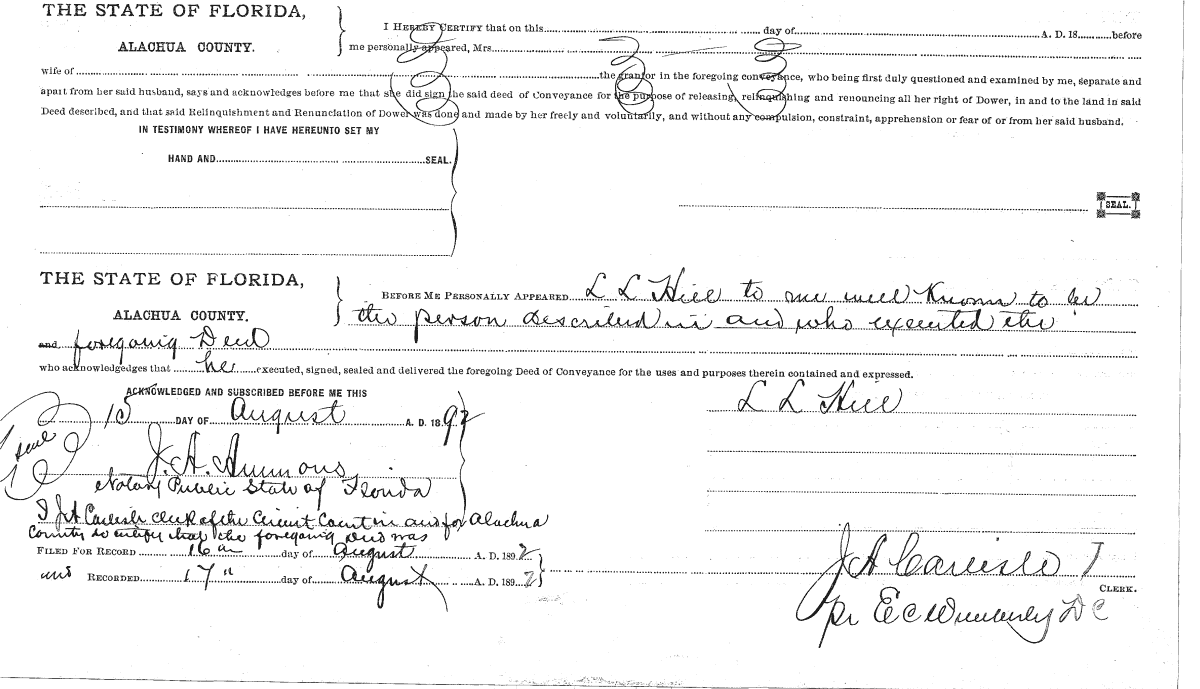 THE STATE OF FLORIDA,
ALACHUA COUNTY.
I HEREBY CERTIFY that on this day of A. D. 18 before
me personally appeared, Mrs.
wife of the grantor in the foregoing conveyance, who being first duly questioned and examined by me, separate and
apart from her said husband, says and acknowledges before me that she did sign the said deed of Conveyance for the purpose of releasing, relinquishing and renouncing all her right of Dower, in and to the land in said
Deed described, and that said Relinquishment and Renunciation of Dower was done and made by her freely and voluntarily, and without any compulsion, constraint, apprehension or fear of or from her said husband.
IN TESTIMONY WHEREOF I HAVE HEREUNTO SET MY
HAND AND SEAL.
SEAL.
THE STATE OF FLORIDA,
ALACHUA COUNTY.
BEFORE ME PERSONALLY APPEARED L L Hill to me well Known to be
the person described in and who executed the
and foregoing Deed
who acknowledgedges that he executed, signed, sealed and delivered the foregoing Deed of Conveyance for the uses and purposes therein contained and expressed.
ACKNOWLEDGED AND SUBSCRIBED BEFORE ME THIS
15 DAY OF August A. D. 18.92
L L Hill
seal
J. A. Ammons
Notary Public State of Florida
I J A Carlisle clerk of the Circuit Court in and for Alachua
County do certify that the foregoing Deed was
FILED FOR RECORD 16 day of August A. D. 189 2
and RECORDED 17" day of August A. D. 189 2
J A Carlisle
CLERK.
pr E C Wimberly D C